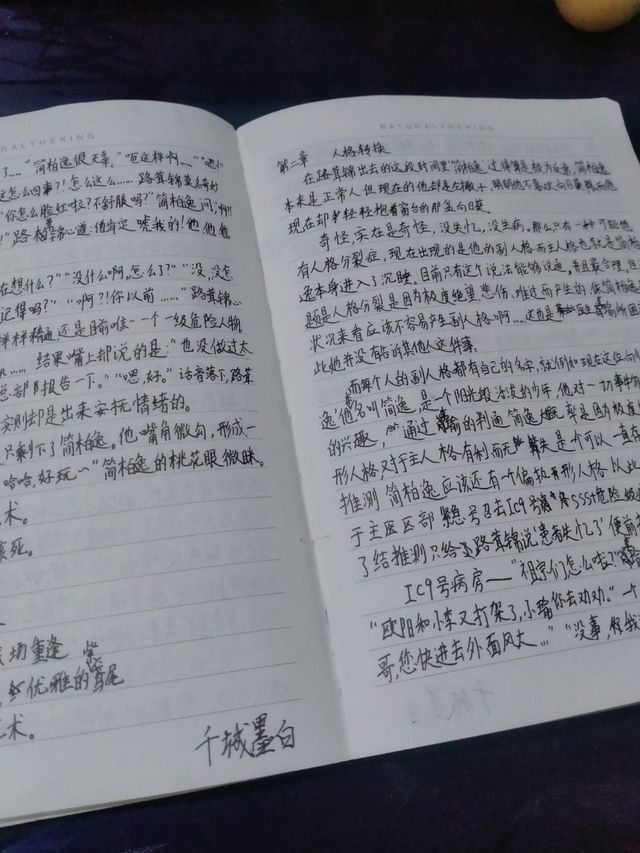 RALTHEKING
了……"简柏逸很无辜。"呃这样啊……""嗯!
这怎么回事?!怎么这么……路茸锦莫名奇妙
"你怎么脸红啦?不舒服吗?"简柏逸问,"啊!!
!"路茸锦心道:他肯定唬我的!他他他
在想什么?""没什么啊,怎么了?""没,没怎
记得吗?""啊?!你以前……"路茸锦心
样样精通还是目前唯一一个一级危险人物
……结果嘴上却说的是:"也没做过太
总部报告一下。""嗯,好。"话音落下,路茸
实则却是出来安抚情绪的。
只剩下了简柏逸,他嘴角微勾,形成一
哈哈,好玩~"简柏逸的桃花眼微眯。
术。
该死。
功重逢
优雅的鸢尾
术。
千城墨白
NATURALTHEKING
第二章 人格转换
在路茸锦出去的这段时间里简柏逸过得算是极为反常,简柏逸
本来是正常人但现在的他却是左撇子,明明他不喜欢向日葵然而他
现在却轻轻抱着窗台的那盆向日葵。
奇怪,实在是奇怪,没失忆,没生病。那么只有一种可能他
有人格分裂症,现在出现的是他的副人格而主人格也就是简柏
逸本身进入了沉睡。目前只有这个说法能够说通,并且最合理。但
题是人格分裂是因为极度绝望悲伤、难过而产生的,依简柏逸
状况来看应该不容易产生副人格啊……这也是
此她并没有告诉其他人这件事。
而每个人的副人格都有自己的名字,就例如现在这位向
逸"他名叫简逸,是一个阳光级活泼的少年,他对一切事物
的兴趣,通过 输的判通简逸 率是因为极直
形人格,对于主人格有制而无 是不可以一直在
推测 简柏逸应该还有一个偏执形人格 从此
于主医区部 总号召去IC9号 SSS危险级
了结推测只给了路茸锦说"患者失忆了"便前
IC9号病房——"祖宗们怎么啦?"
"欧阳和小李又打架了,小瑜你去劝劝。"一个
哥,您快进去外面风大……""没事,